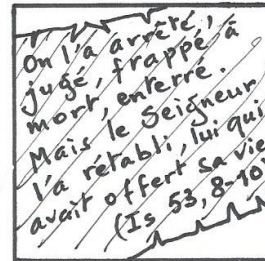 On l'a arrêté,
jugé, frappé à
mort, enterré.
Mais le Seigneur
l'a rétabli, lui qui
avait offert sa vie
(Is 53, 8-10)